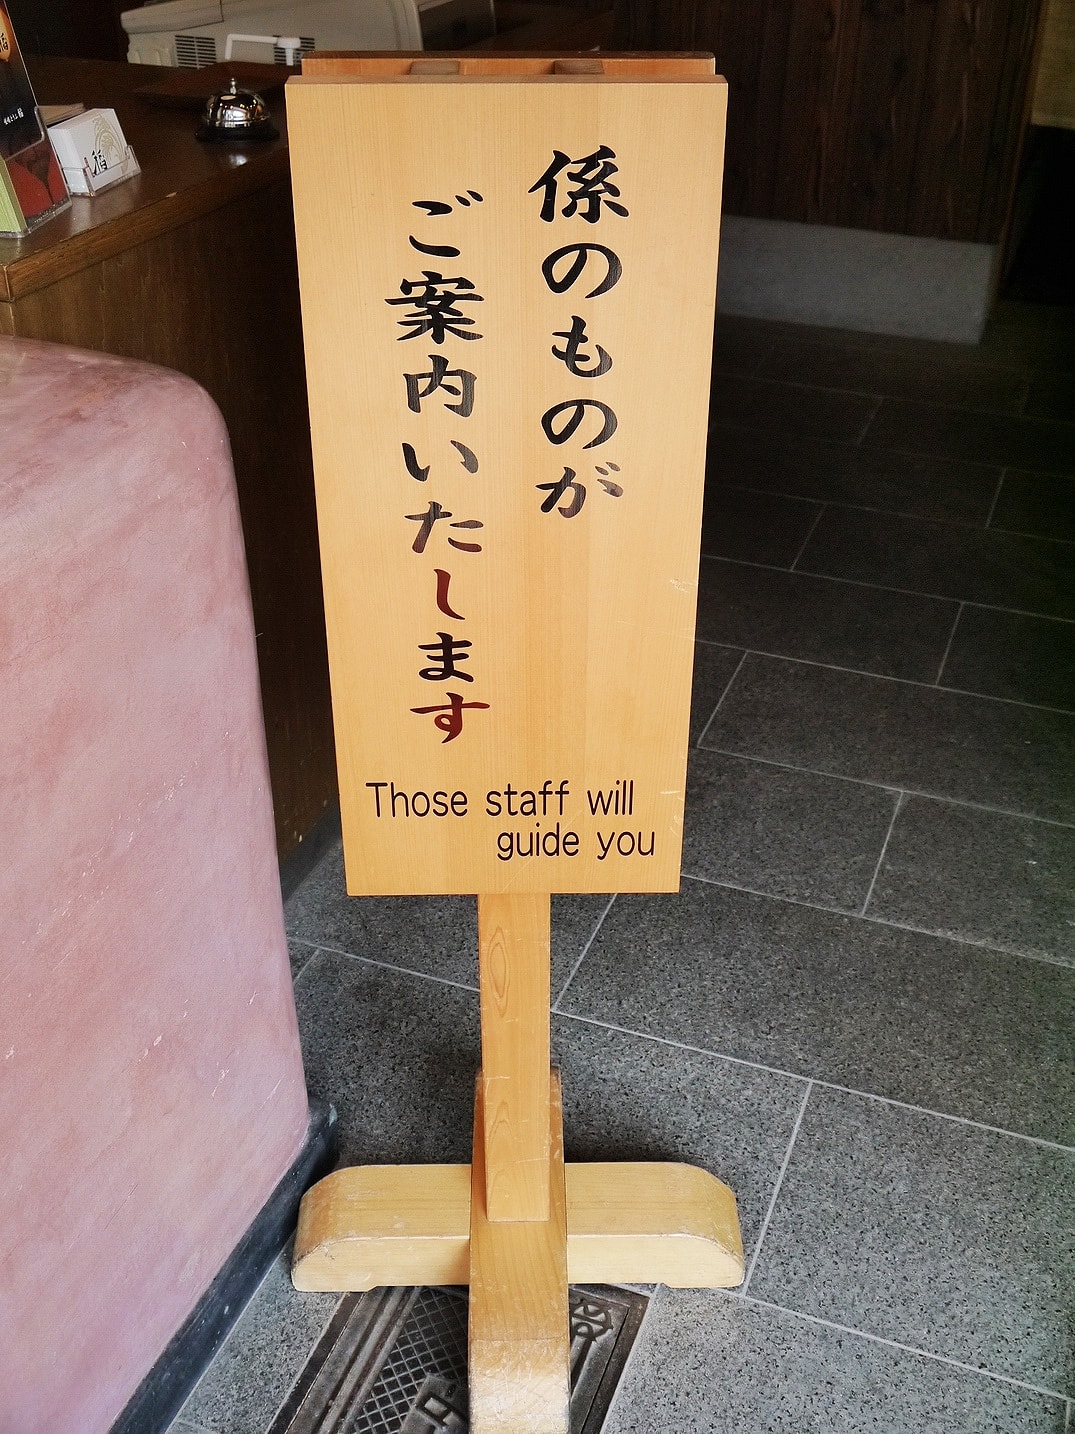 係のものが
ご案内いたします
Those staff will
guide you
稲